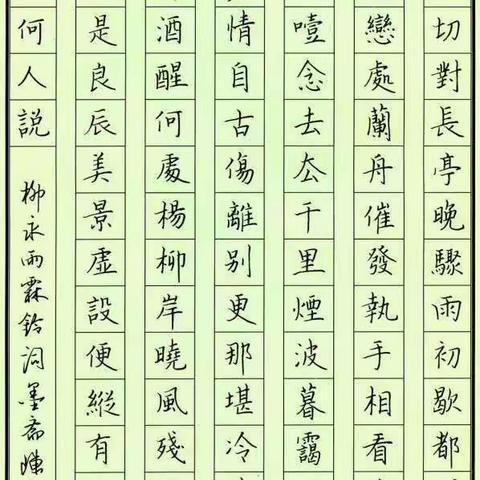 切對長亭晚驟雨初歇都
戀處蘭舟催發執手相看
噎念去厺千里煙波暮靄
情自古傷離別更那堪冷
酒醒何處楊柳岸曉風殘
是良辰美景虛設便縱有
何人説
柳永雨霖鈴詞墨斋